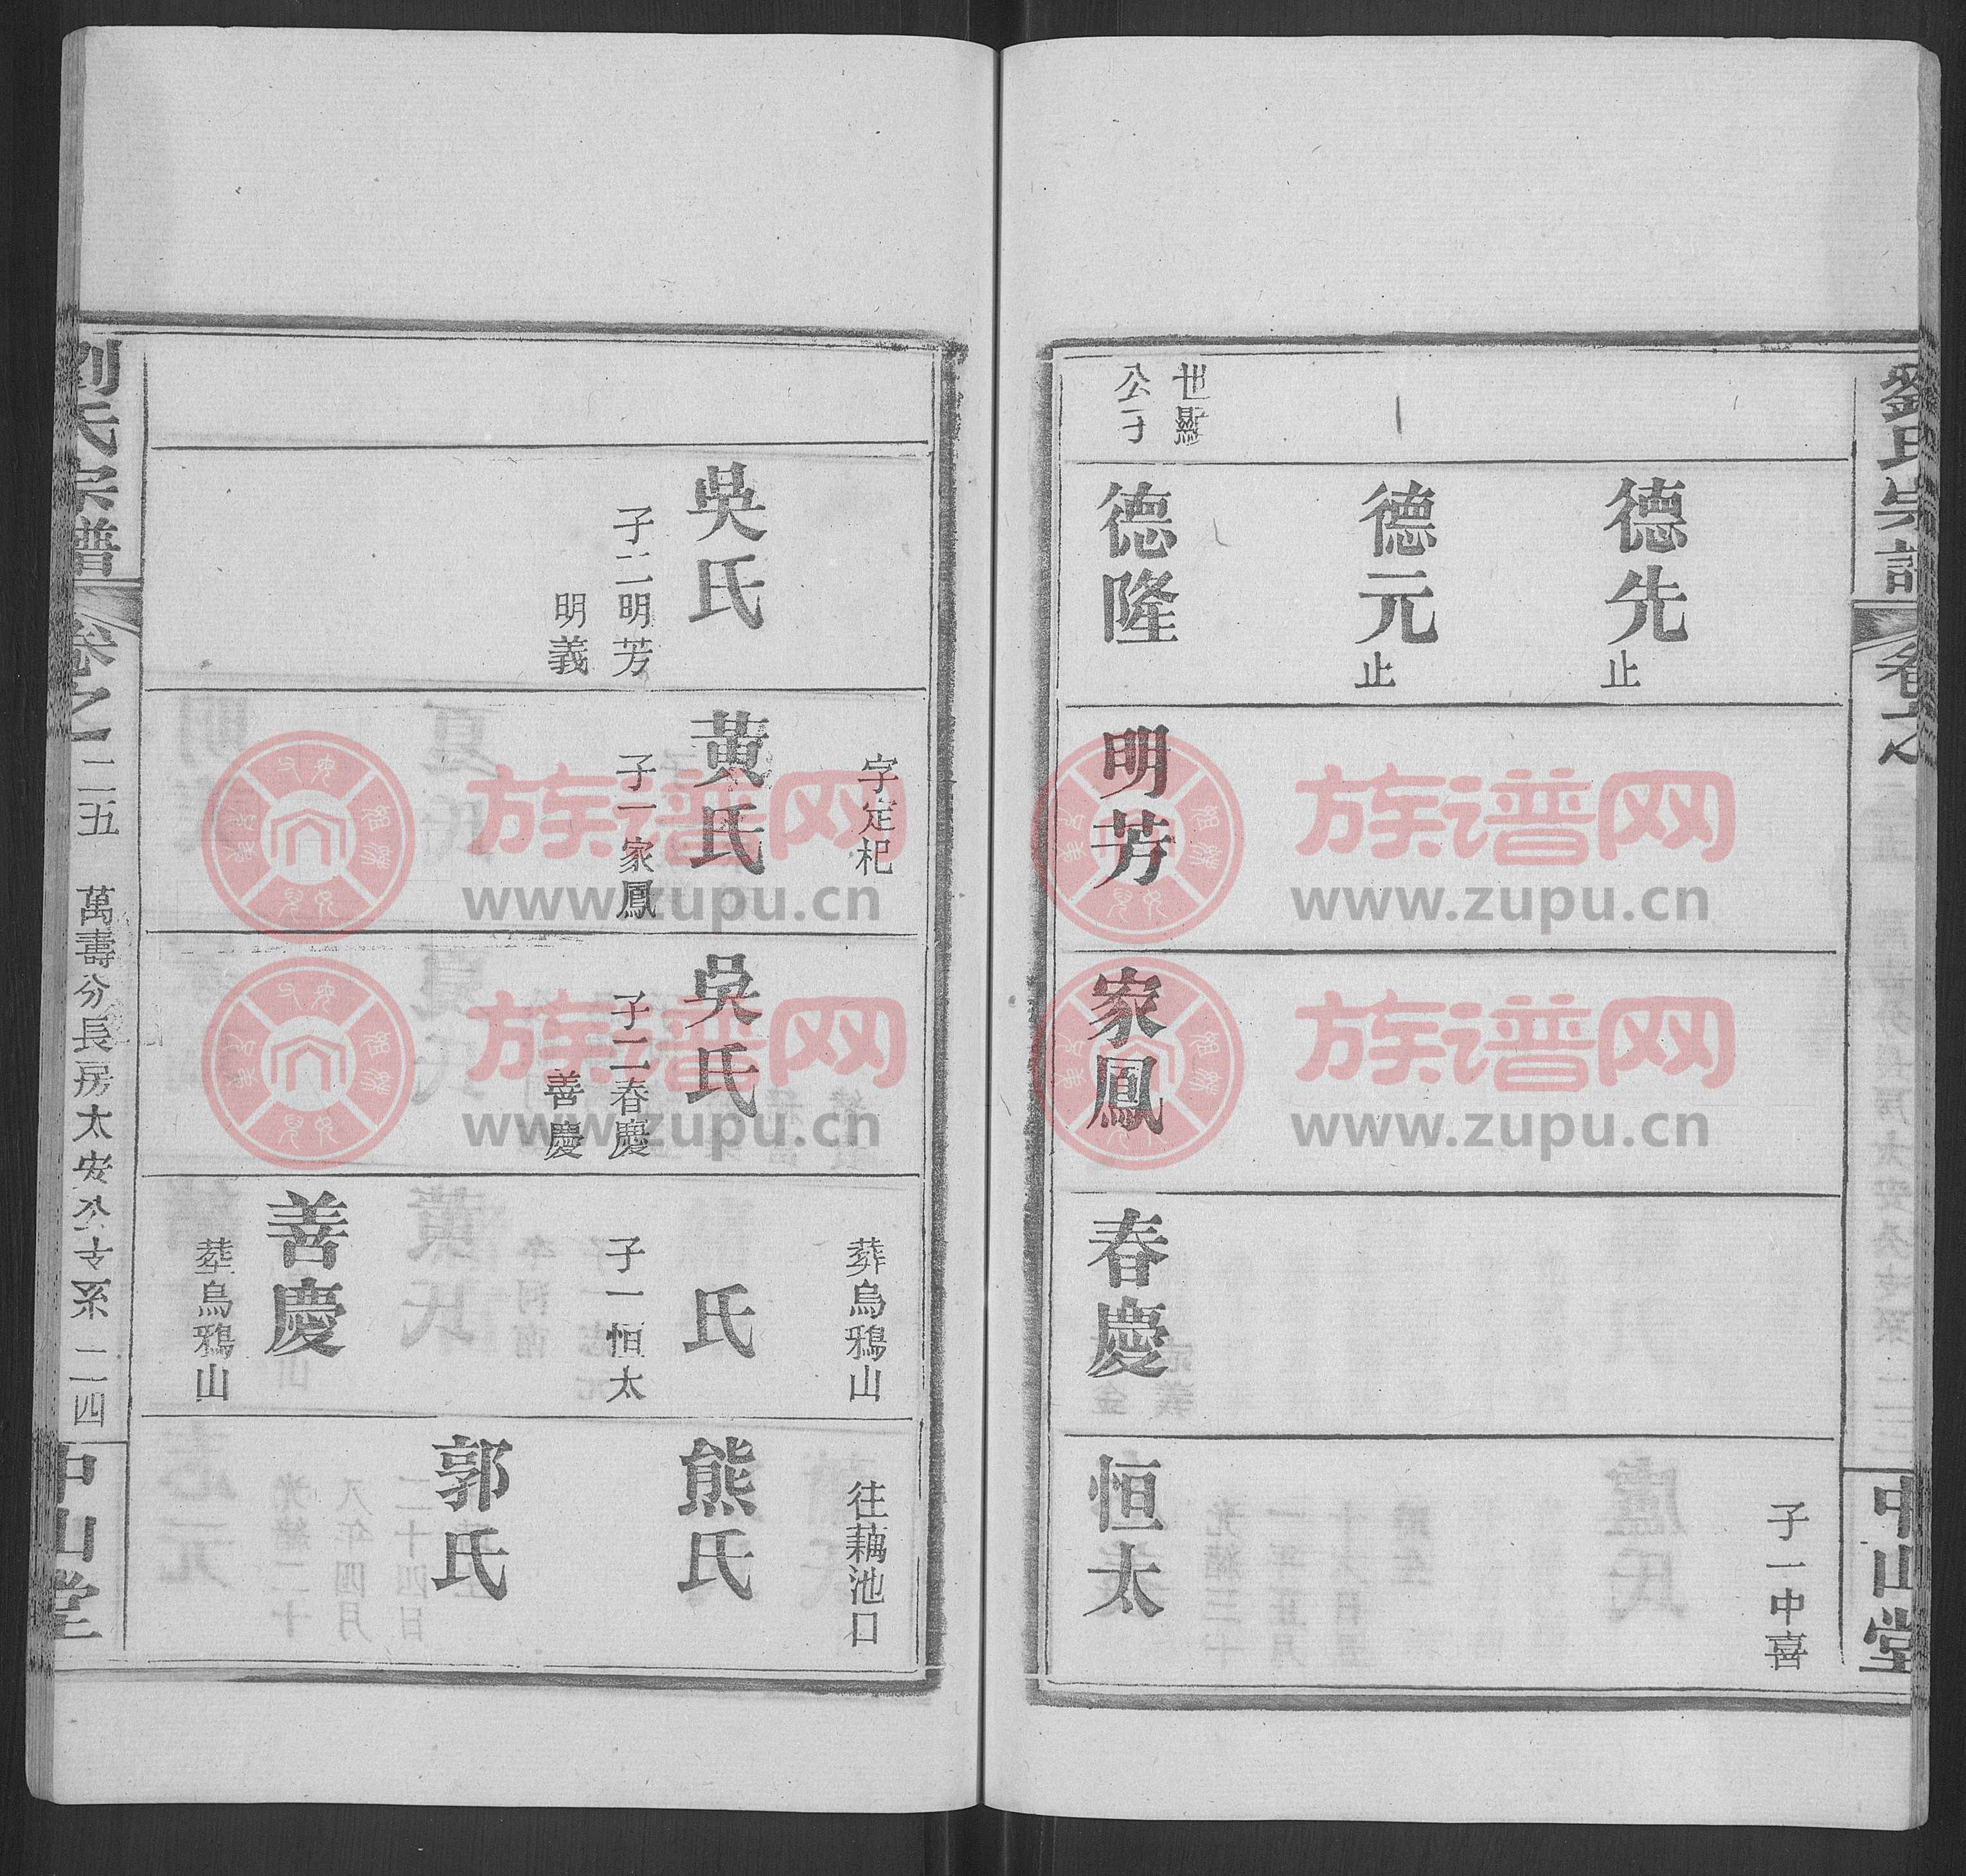 劉氏宗譜
卷之
中山堂
德先
止
子一中喜
德元
止
世顯
公子
德隆
明芳
家鳳
春慶
恒太
字定杞
葬烏鴉山
往藕池口
吳氏
子二明芳
明義
黃氏
子一家鳳
吳氏
子二春慶
善慶
氏
子一恒太
熊氏
郭氏
善慶
葬烏鴉山
劉氏宗譜
卷之一
二五
萬壽分長房太安公支系
二四
中山堂
族谱网
www.zupu.cn
族谱网
www.zupu.cn
族谱网
www.zupu.cn
族谱网
www.zupu.cn